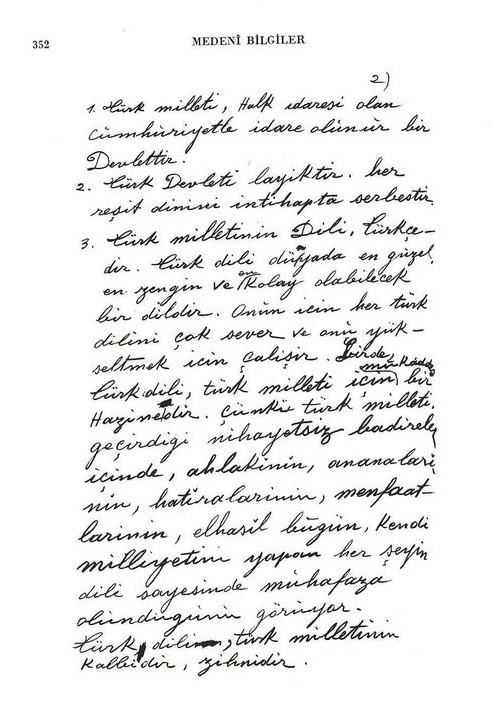 352
MEDENÎ BİLGİLER
2)
1. Türk milleti, Halk idaresi olan
Cümhuriyetle idare olünür bir
Devlettir.
2. Türk Devleti layiktir. her
reşit dinini intihapta serbestir.
3. Türk milletinin Dili, Türkçe-
dir. Türk dili dünyada en güzel,
en zengin ve en kolay olabilecek
bir dildir. Onün icin her türk
dilini çok sever ve onü yük-
seltmek icin çalişir. Birde,
Türk dili, türk milleti için mükaddes bir
Hazinedir. Çünkü türk milleti,
geçirdigi nihayetsiz badireler
içinde, ahlakinin, ananalari
nin, hatiralarinin, menfaat-
larinin, elhasil bügün, Kendi
milliyetini yapan her şeyin
dili sayesinde mühafaza
olündügünü görüyor.
Türk dili, türk milletinin
Kalbidir, zihnidir.